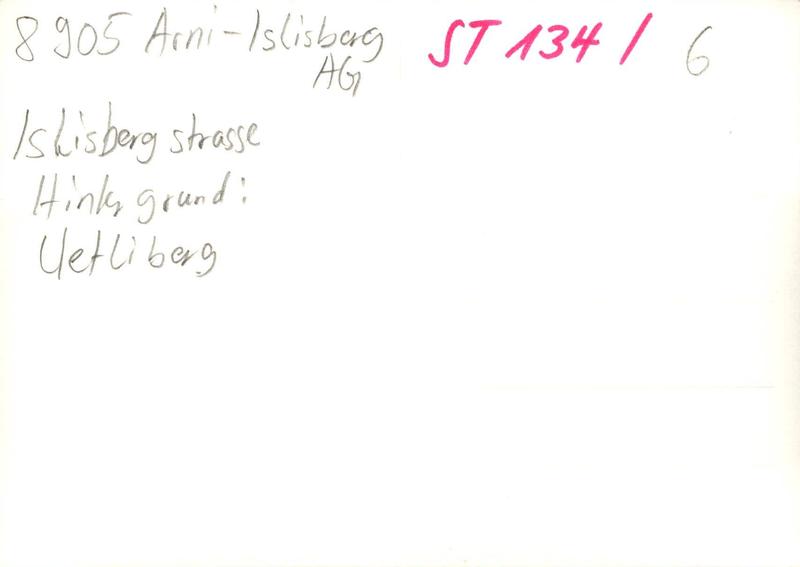 8905 Arni-Islisberg
AG
ST 134 / 6
Islisbergstrasse
Hintergrund:
Uetliberg